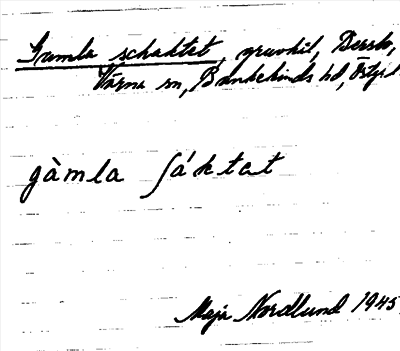 Gamla schaktet, gruvhål, Bersbo,
Värna sn, Bankekinds hd, Östg
gàmla ʃáktət
Maja Nordlund 1945